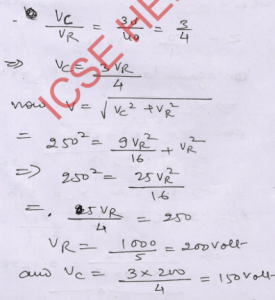 Vc/VR = 30/40 = 3/4
⇒ Vc = 3VR/4
now V = √(Vc² + VR²)
= 250² = 9VR²/16 + VR²
=⇒ 250² = 25VR²/16
=. 25VR/4 = 250
VR = 1000/5 = 200 volt
and Vc = 3×200/4 = 150 volt
ICSE HE